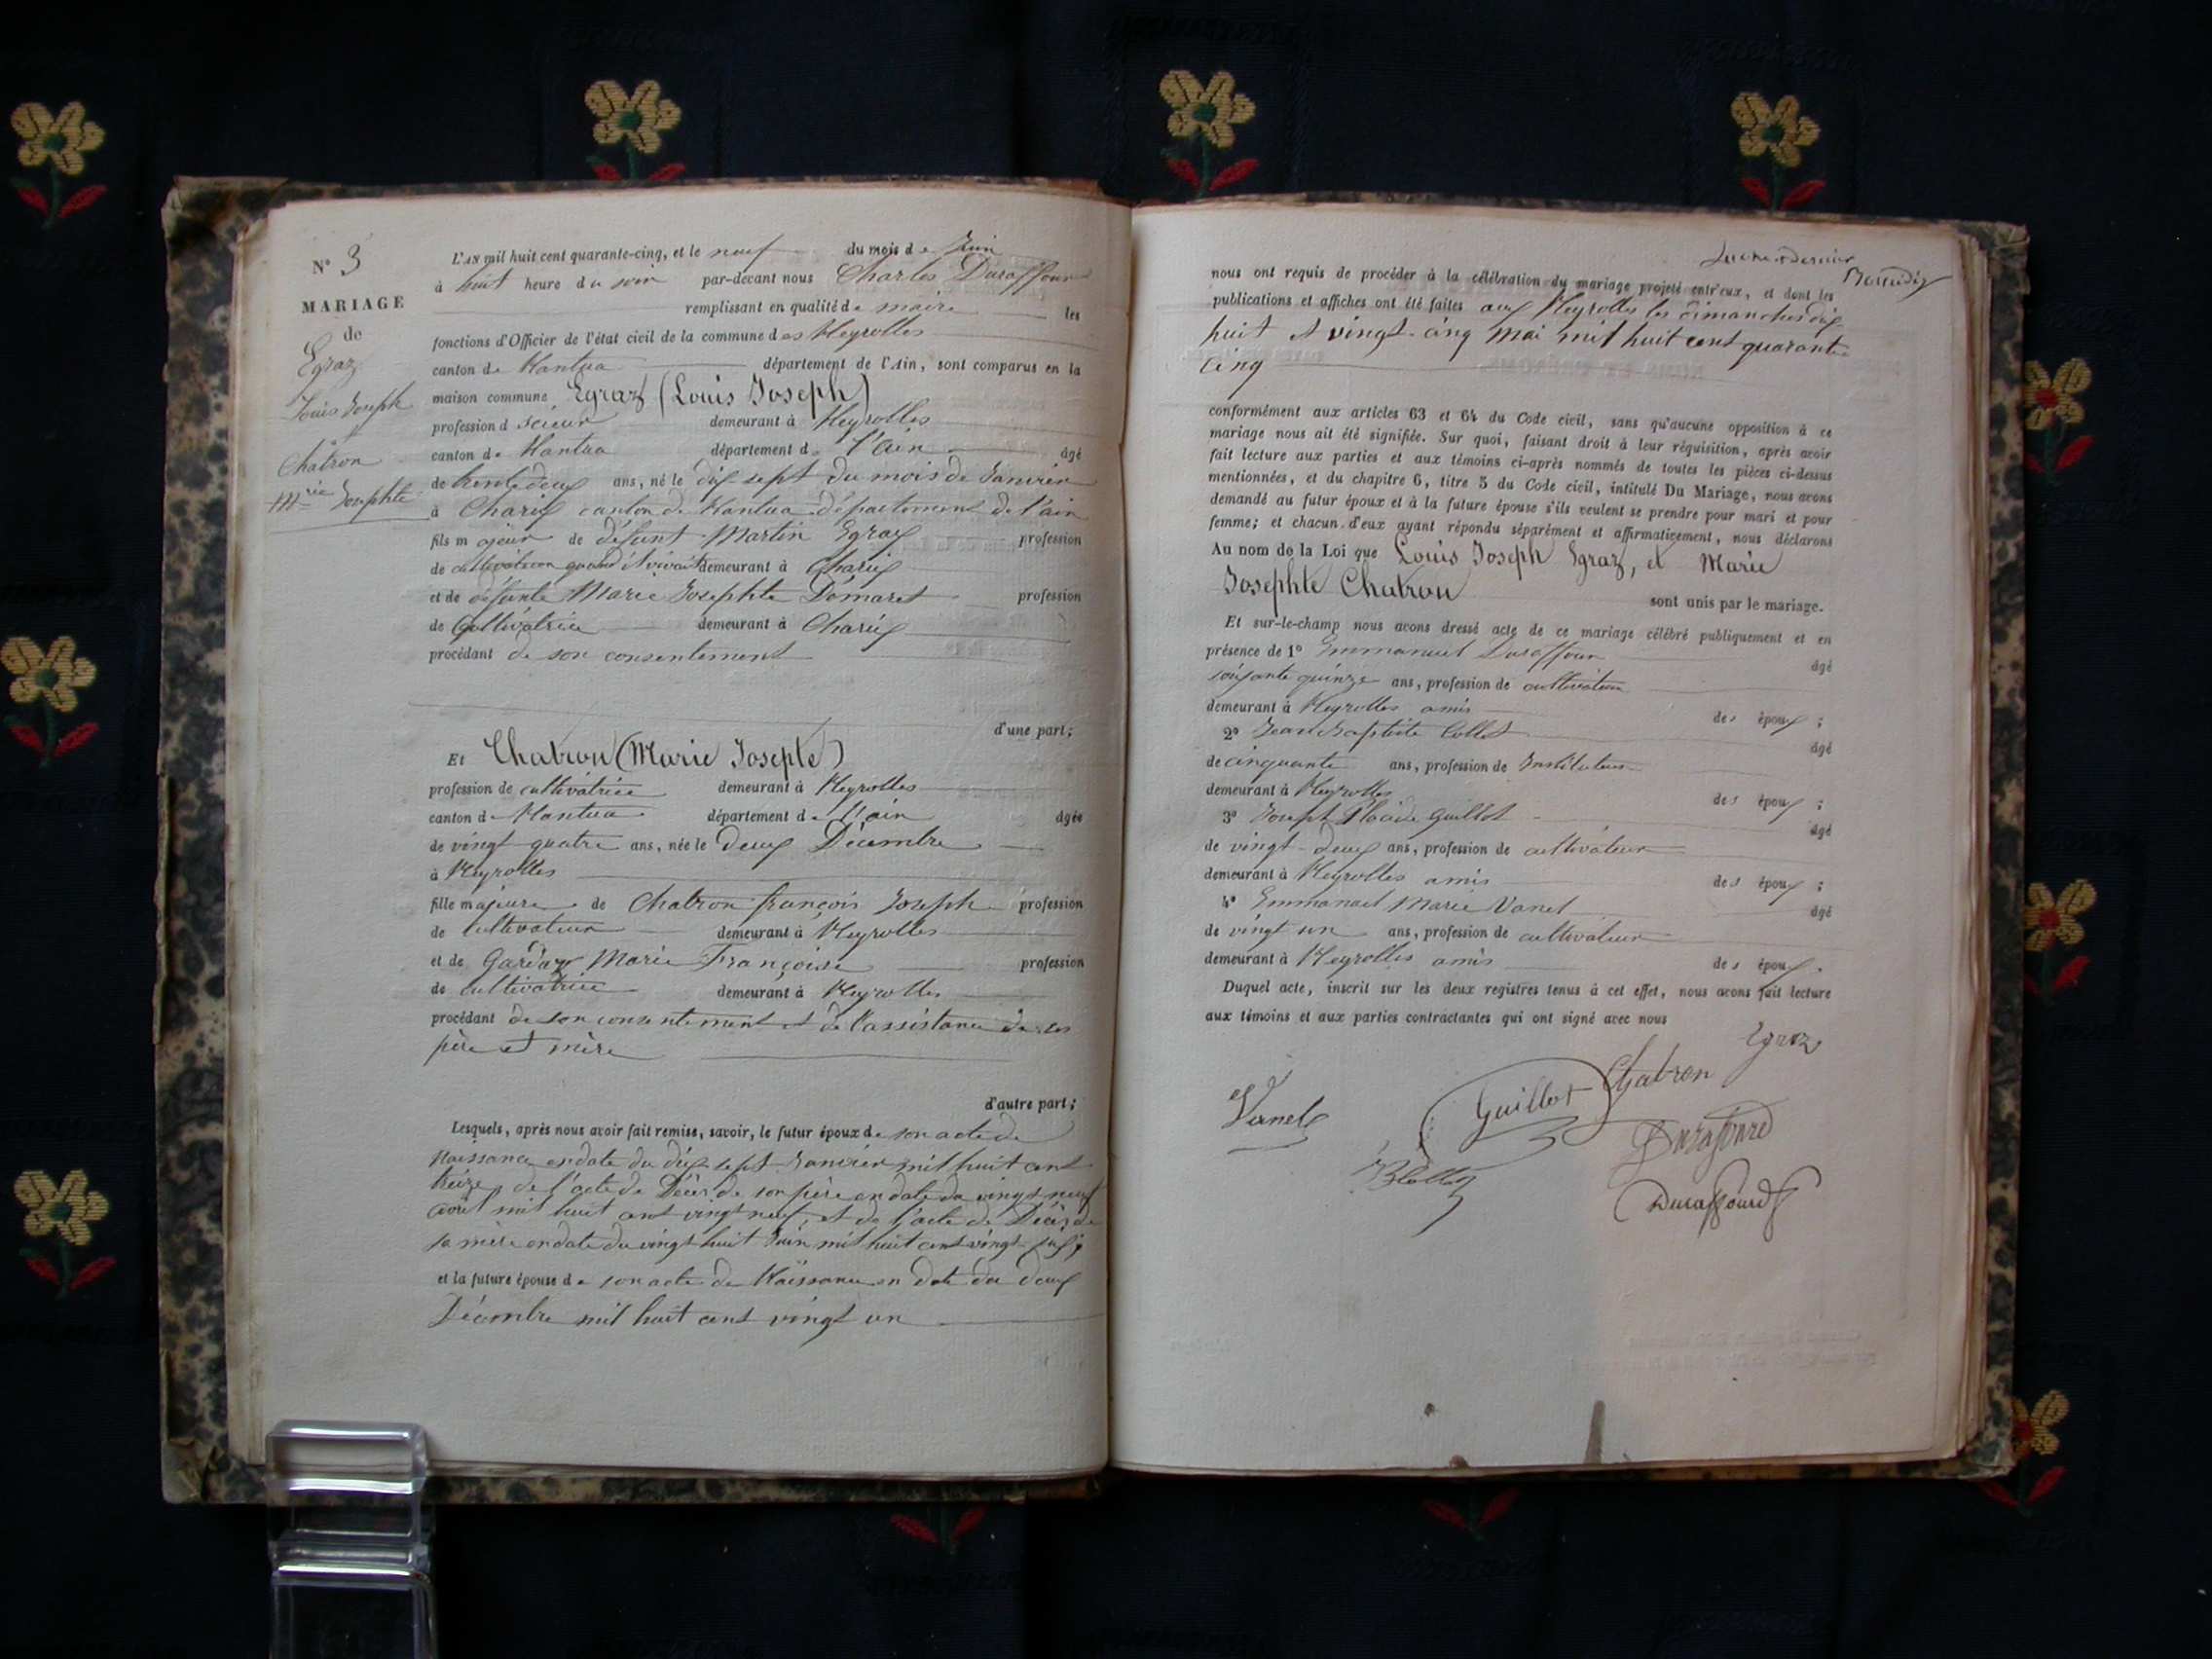 N° 3
MARIAGE
de
Egraz
Louis Joseph
Chatron
Mrie Josephte
L'AN mil huit cent quarante-cinq, et le neuf du mois de Juin
à huit heure du soir par-devant nous Charles Duraffour
remplissant en qualité de maire les
fonctions d'Officier de l'état civil de la commune des Neyrolles
canton de Nantua département de l'Ain, sont comparus en la
maison commune Egraz (Louis Joseph)
profession d scieur demeurant à Neyrolles
canton de Nantua département d l'ain âgé
de trente deux ans, né le dix sept du mois de Janvier
à Charix canton de Nantua département de l'ain
fils majeur de défunt Martin Egraz profession
de cultivateur quand il vivait demeurant à Charix
et de défunte Marie Josephte Démaret profession
de Cultivatrice demeurant à Charix
procédant de son consentement
d'une part;
Et Chatron (Marie Josephte)
profession de cultivatrice demeurant à Neyrolles
canton de Nantua département de l'ain âgée
de vingt quatre ans, née le deux Décembre
à Neyrolles
fille majeure de Chatron françois Joseph profession
de Cultivateur demeurant à Neyrolles
et de Marie Françoise profession
de Cultivatrice demeurant à Neyrolles
procédant de son consentement et de l'assistance de ses
père et mère
d'autre part;
Lesquels, après nous avoir fait remise, savoir, le futur époux de son acte de
Naissance en date du dix sept Janvier mil huit cent
treize, de l'acte de Décès de son père en date du vingt neuf
août mil huit cent vingt neuf, et de l'acte de Décès de
sa mère en date du vingt huit Juin mil huit cent vingt
et la future épouse de son acte de Naissance en date du deux
Décembre mil huit cent vingt un
nous ont requis de procéder à la célébration du mariage projeté entr'eux, et dont les
publications et affiches ont été faites aux Neyrolles les dimanches dix
huit et vingt-cinq Mai mil huit cent quarante
cinq
conformément aux articles 63 et 64 du Code civil, sans qu'aucune opposition à ce
mariage nous ait été signifiée. Sur quoi, faisant droit à leur réquisition, après avoir
fait lecture aux parties et aux témoins ci-après nommés de toutes les pièces ci-dessus
mentionnées, et du chapitre 6, titre 5 du Code civil, intitulé Du Mariage, nous avons
demandé au futur époux et à la future épouse s'ils veulent se prendre pour mari et pour
femme; et chacun d'eux ayant répondu séparément et affirmativement, nous déclarons
Au nom de la Loi que Louis Joseph Egraz, et Marie
Josephte Chatron sont unis par le mariage.
Et sur-le-champ nous avons dressé acte de ce mariage célébré publiquement et en
présence de 1° Emmanuel Duraffour âgé
soixante quinze ans, profession de cultivateur
demeurant à Neyrolles amis des époux ;
2° Jean Baptiste Collet âgé
de cinquante ans, profession de Instituteur
demeurant à Neyrolles des époux ;
3° Joseph Placide Guillot âgé
de vingt-deux ans, profession de cultivateur
demeurant à Neyrolles amis des époux ;
4° Emmanuel Marie Vanel âgé
de vingt un ans, profession de cultivateur
demeurant à Neyrolles amis des époux.
Duquel acte, inscrit sur les deux registres tenus à cet effet, nous avons fait lecture
aux témoins et aux parties contractantes qui ont signé avec nous
Egraz
Chatron
Guillot
Vanel
Duraffourd
Collet
Duraffourd